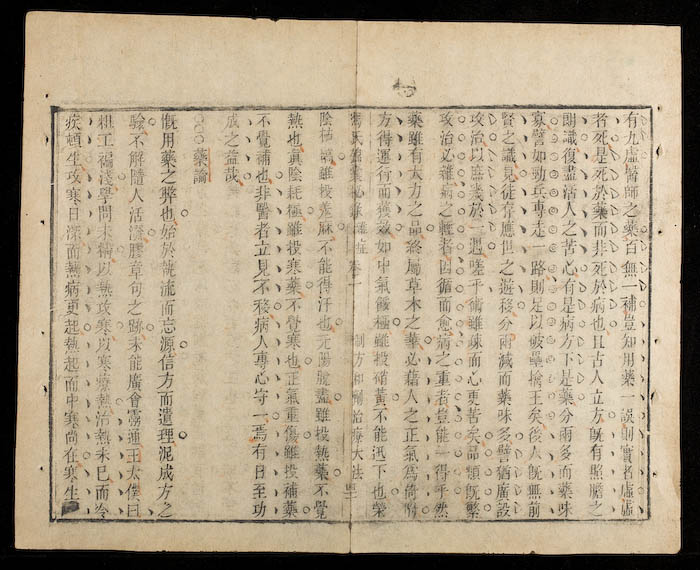 有九虛醫師之藥百無一補豈知用藥一誤則實者虛虛
者死是死於藥而非死於病也且古人立方既有照膽之
朗識復盡活人之苦心有是病方下是藥分兩多而藥味
寡譬如勁兵專走一路則足以破壘擒王矣後人既無前
賢之識見徒存應世之遊移分兩減而藥味多譬猶廣設
攻治以庶幾於一遇嗟乎術雖疎而心更苦矣品類既繁
攻治必雜病之輕者因循而愈病之重者豈能一得乎然
藥雖有大力之品終屬草木之華必藉人之正氣為倚附
方得運行而獲效如中氣餒極雖投硝黃不能迅下也榮
馮氏錦囊秘錄雜症 卷一 制方和劑治療大法
陰枯竭雖投羌麻不能得汗也元陽脫盡雖投熱藥不覺
熱也真陰耗極雖投寒藥不覺寒也正氣重傷雖投補藥
不覺補也非醫者立見不移病人專心守一焉有日至功
成之益哉
藥論
慨用藥之弊也始於該流而忘源信方而遺理泥成方之
驗不解隨人活潑膠章句之跡未能廣會靈通王太僕曰
粗工褊淺學問未精以熱攻寒以寒療熱治熱未已而冷
疾頓生攻寒日深而熱病更起熱起而中寒尚在寒生